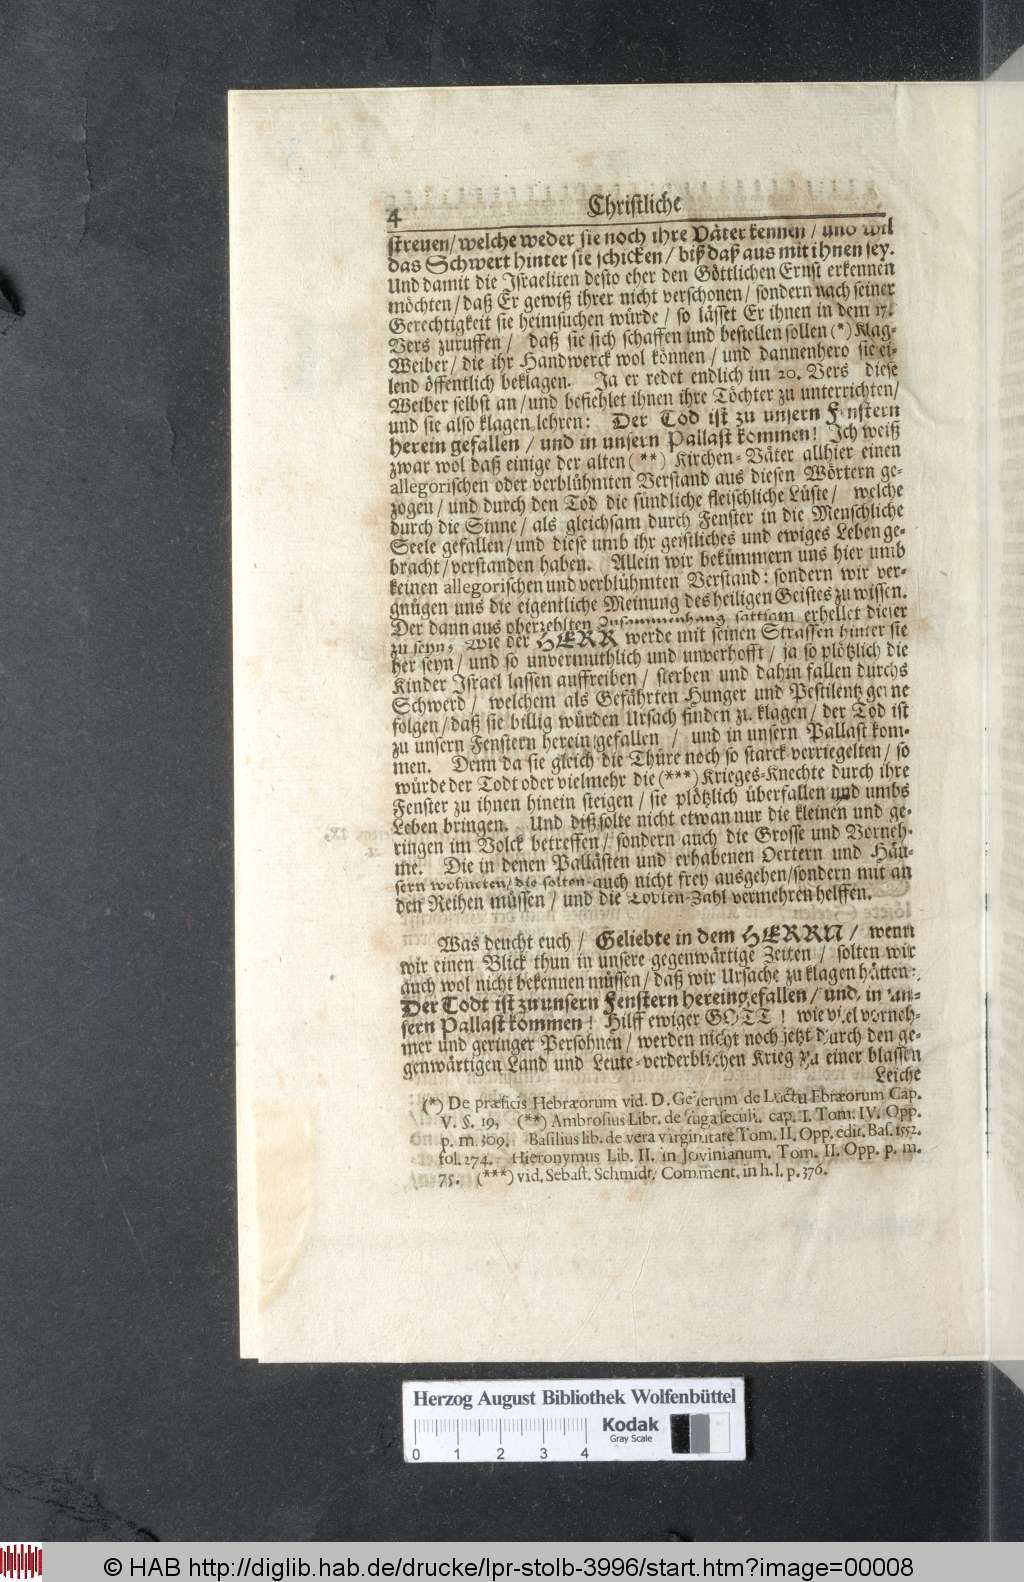 4
Christliche
streuen/welche weder sie noch ihre Väter kennen / und wil
das Schwert hinter sie schicken / biß daß aus mit ihnen sey.
Und damit die Israeliten desto eher den Göttlichen Ernst erkennen
möchten/daß Er gewiß ihrer nicht verschonen/ sondern nach seiner
Gerechtigkeit sie heimsuchen würde / so lässet Er ihnen in dem 17.
Vers zuruffen / daß sie sich schaffen und bestellen sollen (*) Klag-
Weiber/ die ihr Handwerck wol können / und dannenhero sie ei-
lend öffentlich beklagen. Ja er redet endlich im 20. Vers diese
Weiber selbst an/und befiehlet ihnen ihre Töchter zu unterrichten/
und sie also klagen lehren: Der Tod ist zu unsern Fenstern
herein gefallen / und in unsern Pallast kommen! Ich weiß
zwar wol daß einige der alten (**) Kirchen-Väter allhier einen
allegorischen oder verblühmten Verstand aus diesen Wörtern ge-
zogen/ und durch den Tod die sündliche fleischliche Lüste/ welche
durch die Sinne/ als gleichsam durch Fenster in die Menschliche
Seele gefallen/und diese umb ihr geistliches und ewiges Leben ge-
bracht/verstanden haben. Allein wir bekümmern uns hier umb
keinen allegorischen und verblühmten Verstand: sondern wir ver-
gnügen uns die eigentliche Meinung des heiligen Geistes zu wissen.
Der dann aus oberzehlten Zusammenhang sattsam erhellet dieser
zu seyn, Wie der HERR werde mit seinen Straffen hinter sie
her seyn/ und so unvermuthlich und unverhofft/ ja so plötzlich die
Kinder Israel lassen auffreiben/ sterben und dahin fallen durchs
Schwerd/ welchem als Gefährten Hunger und Pestilentz gerne
folgen/daß sie billig würden Ursach finden zu klagen/ der Tod ist
zu unsern Fenstern herein gefallen / und in unsern Pallast kom-
men. Denn da sie gleich die Thüre noch so starck verriegelten/ so
würde der Todt oder vielmehr die (***) Krieges-Knechte durch ihre
Fenster zu ihnen hinein steigen/ sie plötzlich überfallen und umbs
Leben bringen. Und diß solte nicht etwan nur die kleinen und ge-
ringen im Volck betreffen/ sondern auch die Grosse und Vorneh-
me. Die in denen Pallästen und erhabenen Oertern und Häu-
sern wohneten/ die solten auch nicht frey ausgehen/sondern mit an
den Reihen müssen/ und die Todten-Zahl vermehren helffen.
Was deucht euch/ Geliebte in dem HERRN/ wenn
wir einen Blick thun in unsere gegenwärtige Zeiten/ solten wir
auch wol nicht bekennen müssen/ daß wir Ursache zu klagen hätten:
Der Todt ist zu unsern Fenstern hereingefallen/ und in un-
sern Pallast kommen! Hilff ewiger GOTT! wie viel vorneh-
mer und geringer Persohnen/ werden nicht noch jetzt durch den ge-
genwärtigen Land und Leute-verderblichen Krieg zu einer blassen
Leiche
(*) De præficis Hebræorum vid. D. Geierum de Luctu Ebræorum Cap.
V. §. 19, (**) Ambrosius Libr. de fuga seculi. cap. I. Tom. IV. Opp.
p. m. 309. Basilius lib. de vera virginitate Tom. II. Opp. edit. Bas. 1552.
fol. 274. Hieronymus Lib. II. in Jovinianum. Tom. II. Opp. p. m.
75. (***) vid. Sebast. Schmidt. Comment. in h. l. p. 376.
Herzog August Bibliothek Wolfenbüttel
Kodak
Gray Scale
0 1 2 3 4
© HAB http://diglib.hab.de/drucke/lpr-stolb-3996/start.htm?image=00008